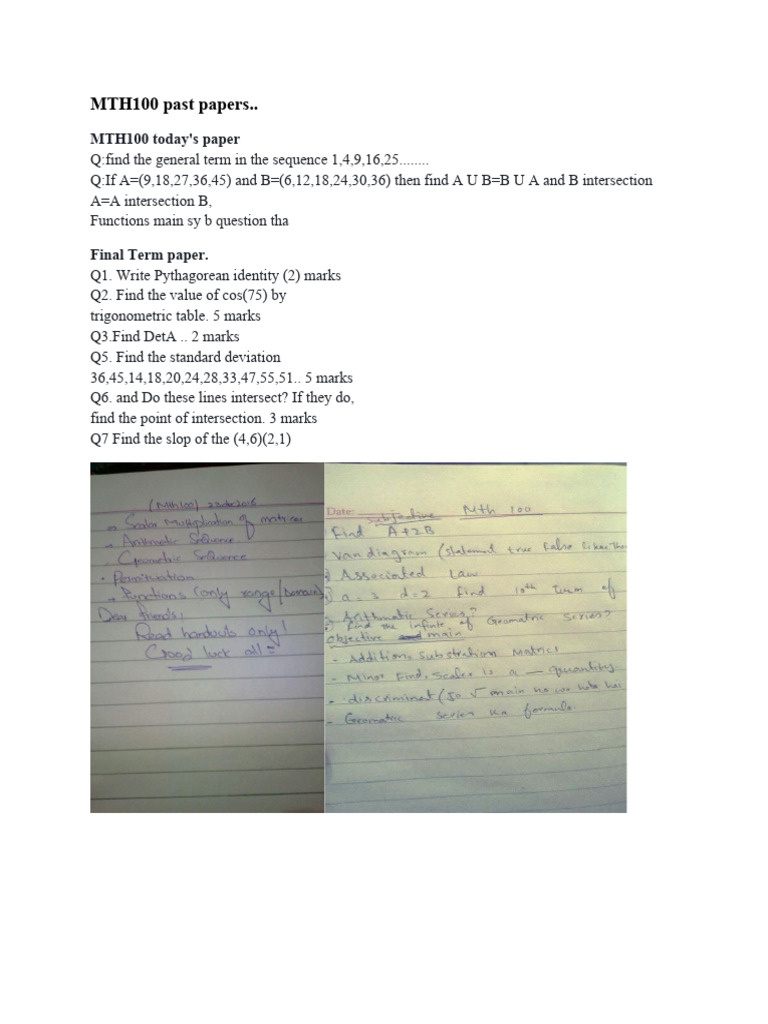 MTH100 past papers..
MTH100 today's paper
Q:find the general term in the sequence 1,4,9,16,25........
Q:If A=(9,18,27,36,45) and B=(6,12,18,24,30,36) then find A U B=B U A and B intersection
A=A intersection B,
Functions main sy b question tha
Final Term paper.
Q1. Write Pythagorean identity (2) marks
Q2. Find the value of cos(75) by
trigonometric table. 5 marks
Q3.Find DetA .. 2 marks
Q5. Find the standard deviation
36,45,14,18,20,24,28,33,47,55,51.. 5 marks
Q6. and Do these lines intersect? If they do,
find the point of intersection. 3 marks
Q7 Find the slop of the (4,6)(2,1)
(Mth100)
Scalar Multiplication of matrices
Arithmatic Sequence
Geometric Sequence
Permituation
Functions (only range/Domain)
Dear friends!
Read handouts only!
Good luck all =
Date:
Subjective Mth 100
Find A+2B
Van diagram (statement true False
Associated Law
a = 3 d = 2 find 10th Term of
Arithmatic Series?
Find the infinite of Geomatric Series?
Objective main
- Addition, Substration Matrics
- Minor Find, Scaler is a — quantity
- discriminat (Jo √ main
- Geomatric Series ka formula.